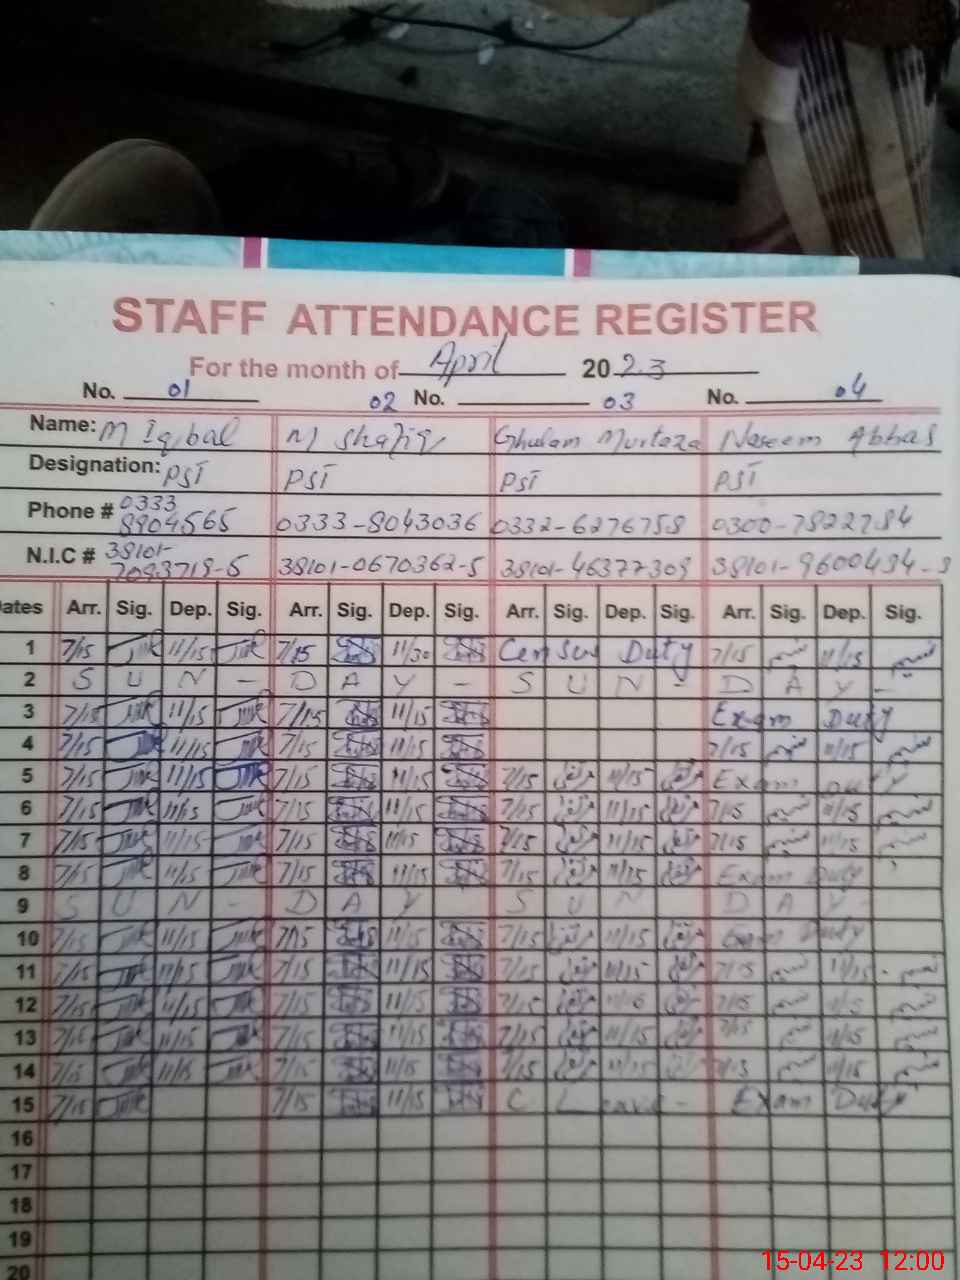 STAFF ATTENDANCE REGISTER
For the month of April 2023
No. 01 02 No. 03 No. 04
Name: M Iqbal M Shafiq Ghulam Murtaza Naseem Abbas
Designation: PST PST PST PST
Phone # 0333 8904565 0333-8043036 0332-6276758 0300-7822784
N.I.C # 38101- 7093719-5 38101-0670362-5 38101-46377309 38101-9600494-3
Dates Arr. Sig. Dep. Sig. Arr. Sig. Dep. Sig. Arr. Sig. Dep. Sig. Arr. Sig. Dep. Sig.
1 7/15 11/15 7/15 11/30 Census Duty 7/15 11/15
2 S U N - D A Y - S U N - D A Y -
3 7/15 11/15 7/15 11/15 Exam Duty
4 7/15 11/15 7/15 11/15 7/15 11/15
5 7/15 11/15 7/15 11/15 7/15 11/15 Exam Duty
6 7/15 11/15 7/15 11/15 7/15 11/15 7/15 11/15
7 7/15 11/15 7/15 11/15 7/15 11/15 7/15 11/15
8 7/15 11/15 7/15 11/15 7/15 11/15 Exam Duty
9 S U N - D A Y S U N D A Y -
10 7/15 11/15 7/15 11/15 7/15 11/15 Exam Duty
11 7/15 11/15 7/15 11/15 7/15 11/15 7/15 11/15
12 7/15 11/15 7/15 11/15 7/15 11/15 7/15 11/15
13 7/15 11/15 7/15 11/15 7/15 11/15 7/15 11/15
14 7/15 11/15 7/15 11/15 7/15 11/15 7/15 11/15
15 7/15 7/15 11/15 C Leave - Exam Duty
16
17
18
19
20
15-04-23 12:00